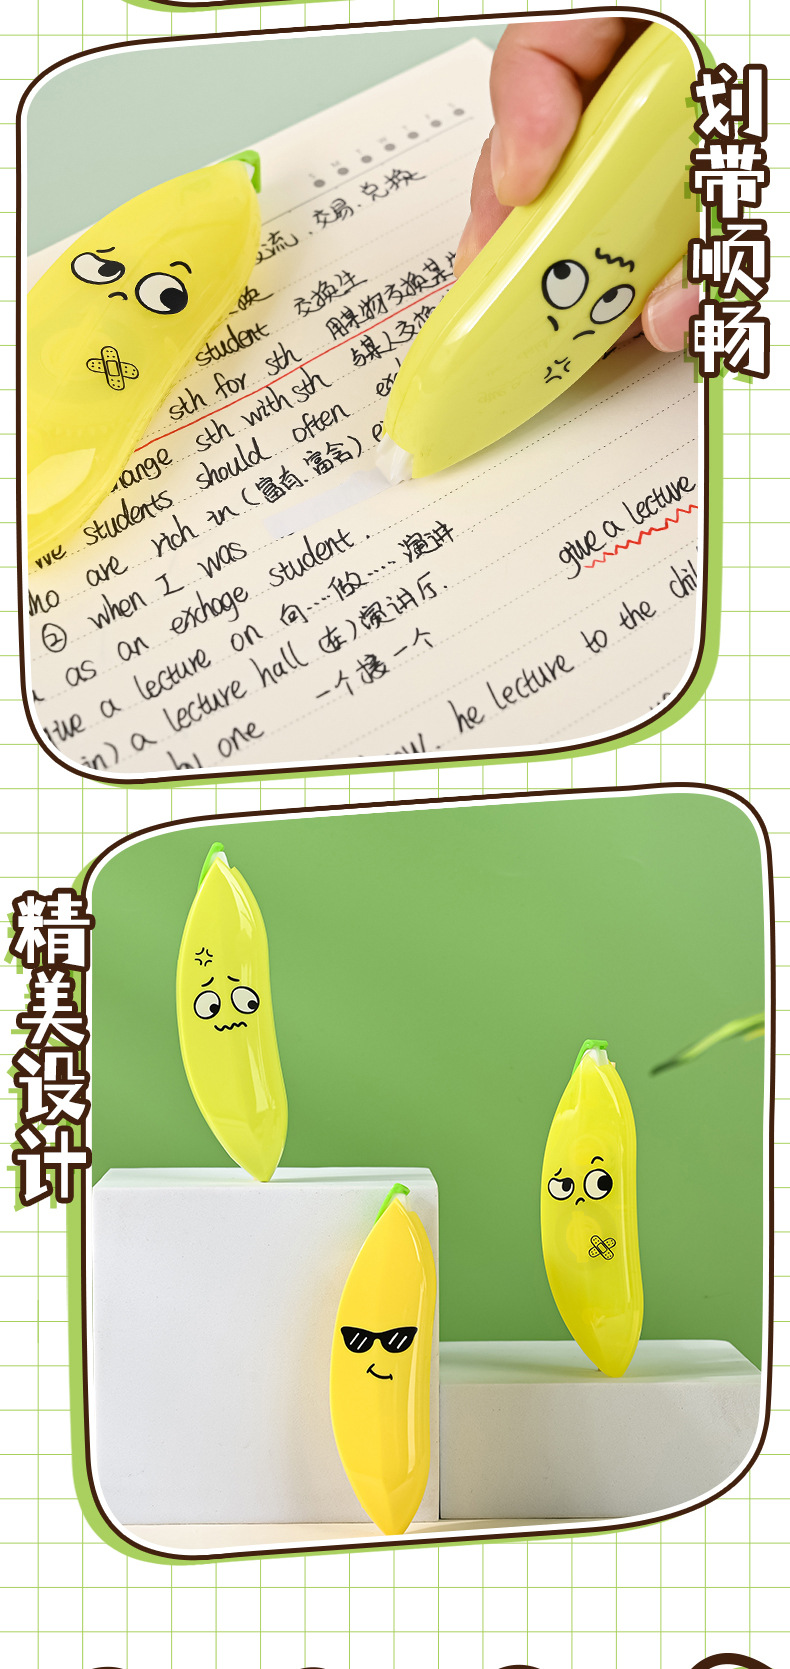 划带顺畅
交流.交易.兑换
student 交换生
sth for sth 用某物交换某
sth with sth 与某人交换
students should often
who are rich in (富有.富含)
② when I was
as an exchage student.
give a lecture
a lecture on 向....做.... 演讲
in) a lecture hall (在)演讲厅.
by one 一个接一个
he lecture to the chil
精美设计